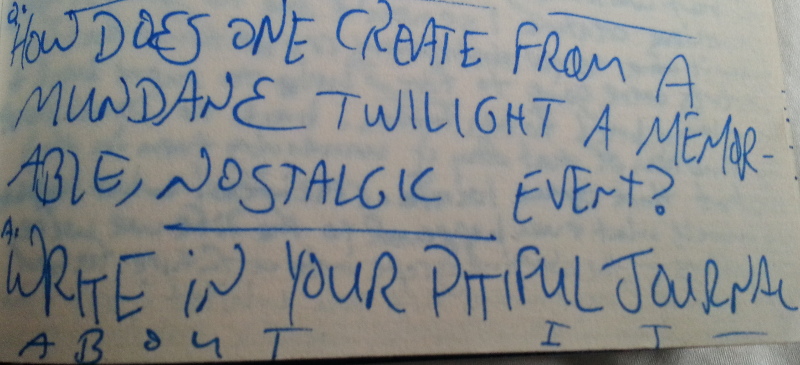 Q: HOW DOES ONE CREATE FROM A
MUNDANE TWILIGHT A MEMOR-
ABLE, NOSTALGIC EVENT?
A: WRITE IN YOUR PITIFUL JOURNAL
ABOUT IT